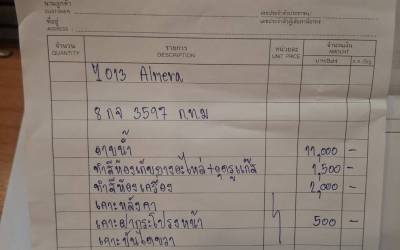 นามลูกค้า
CUSTOMER
เลขประจำตัวประชาชน
ที่อยู่
ADDRESS
เลขประจำตัวผู้เสียภาษีอากร
จำนวน รายการ หน่วยละ จำนวนเงิน
QUANTITY DESCRIPTION UNIT PRICE AMOUNT
ปี 013 Almera
8 กจ 3597 ก.ท.ม
อาบน้ำ 11,000 -
ทำสีห้องเก็บยางอะไหล่+อุดรูแก๊ส 1,500 -
ทำสีห้องเครื่อง 2,000 -
เคาะหลังคา
เคาะฝากระโปรงหน้า 500 -
เคาะ